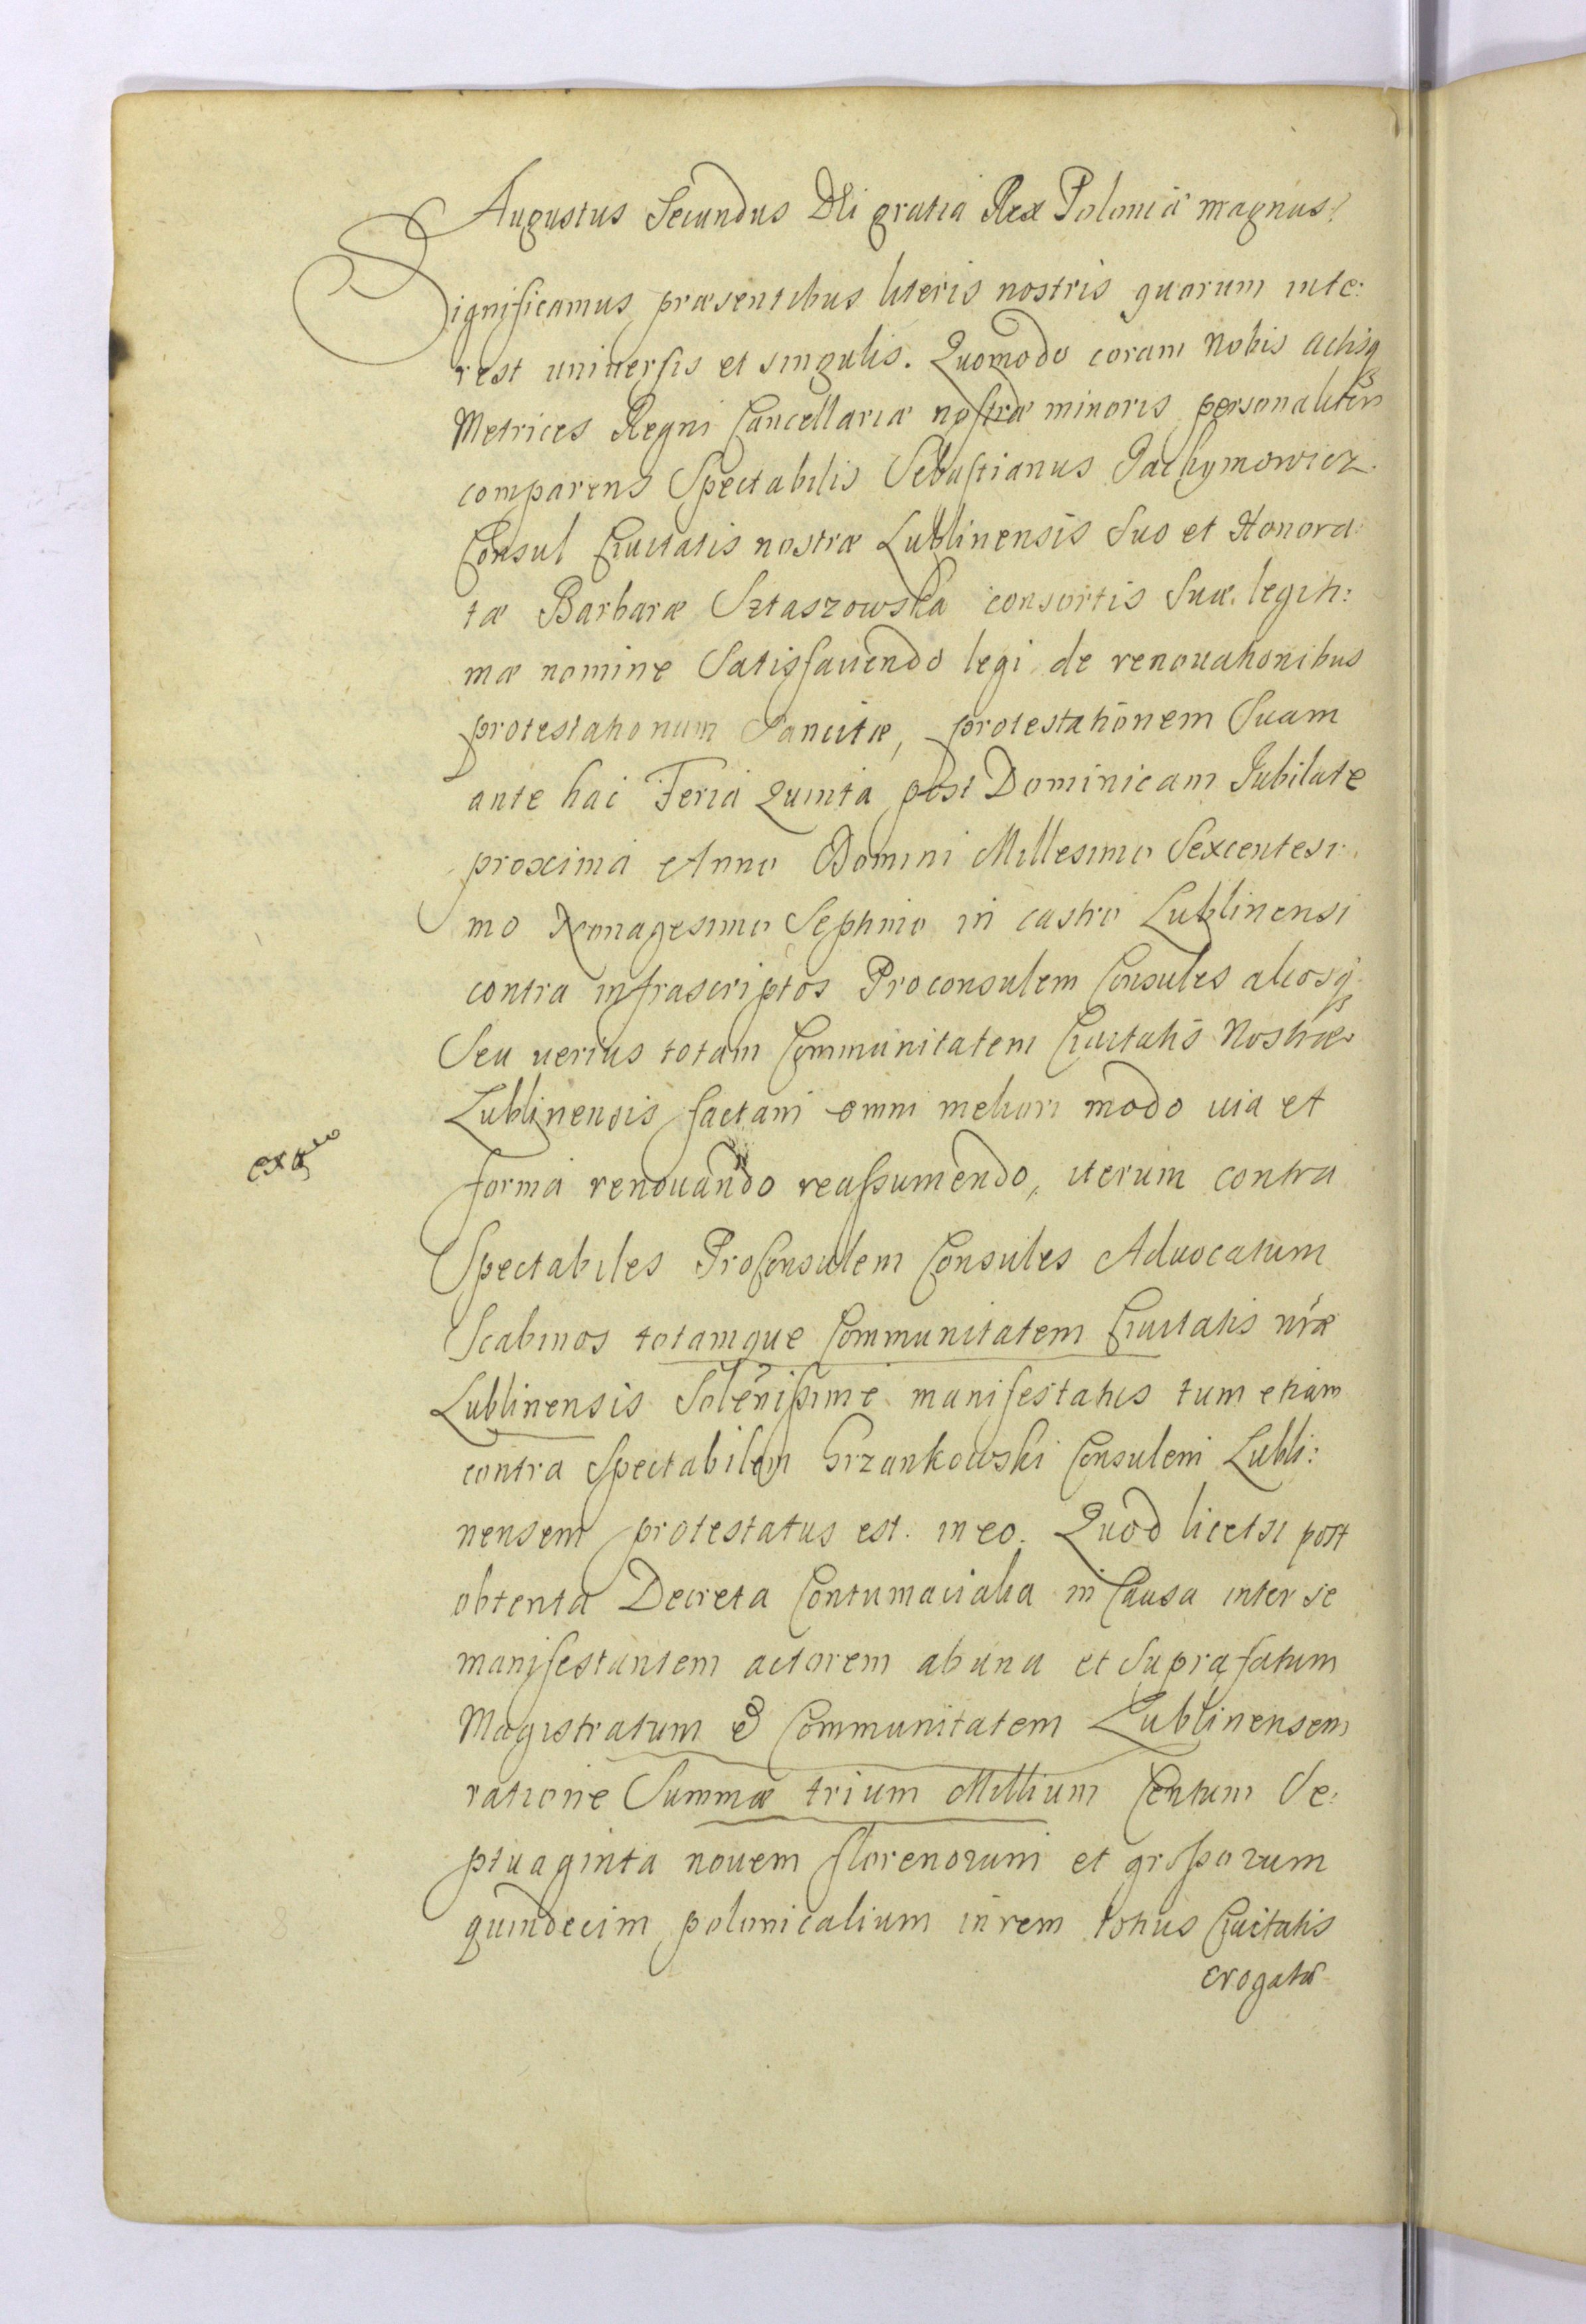 Augustus Secundus Dei gratia Rex Poloniæ magnus
Significamus præsentibus literis nostris quorum inte:
rest universis et singulis. Quomodo coram Nobis actisq
Metrices Regni Cancellariæ nostræ minoris personaliter
comparens Spectabilis Sebastianus Pachymowicz
Consul Civitatis nostræ Lublinensis Suo et Honora:
tæ Barbaræ Sztaszowska consortis Suæ legiti:
mæ nomine Satisfaciendo legi de renouationibus
protestationum Sancitæ, protestationem Suam
ante hac Feria Quinta post Dominicam Jubilate
proxima Anno Domini Millesimo Sexcentesi:
mo Nonagesimo Septimo in castro Lublinensi
contra infrascriptos Proconsulem Consules aliosq
Seu uerius totam Communitatem Civitatis Nostræ
Lublinensis factam omni meliori modo uia et
forma renouando reassumendo, iterum contra
Spectabiles ProConsulem Consules Aduocatum
Scabinos totamque Communitatem Civitatis nræ
Lublinensis Solenissime manifestatus tum etiam
contra Spectabilem Grzankowski Consulem Lubli:
nensem protestatus est. in eo. Quod licet si post
obtenta Decreta Contumacialia in Causa inter se
manifestantem actorem ab una et Suprafatum
Magistratum & Communitatem Lublinensem
ratione Summæ trium Millium Centum Se:
ptuaginta nouem florenorum et grossorum
quindecim polonicalium in rem totius Civitatis
erogatæ